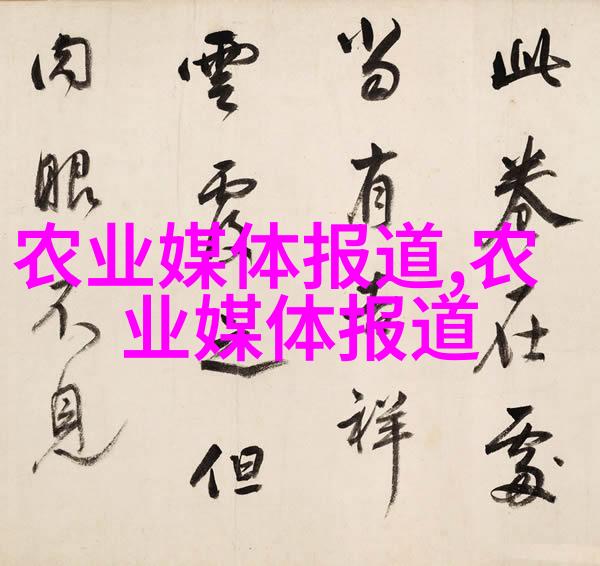 此卷在處
当有吉祥
雲覆之但
肉眼不見
农业媒体报道,农
业媒体报道